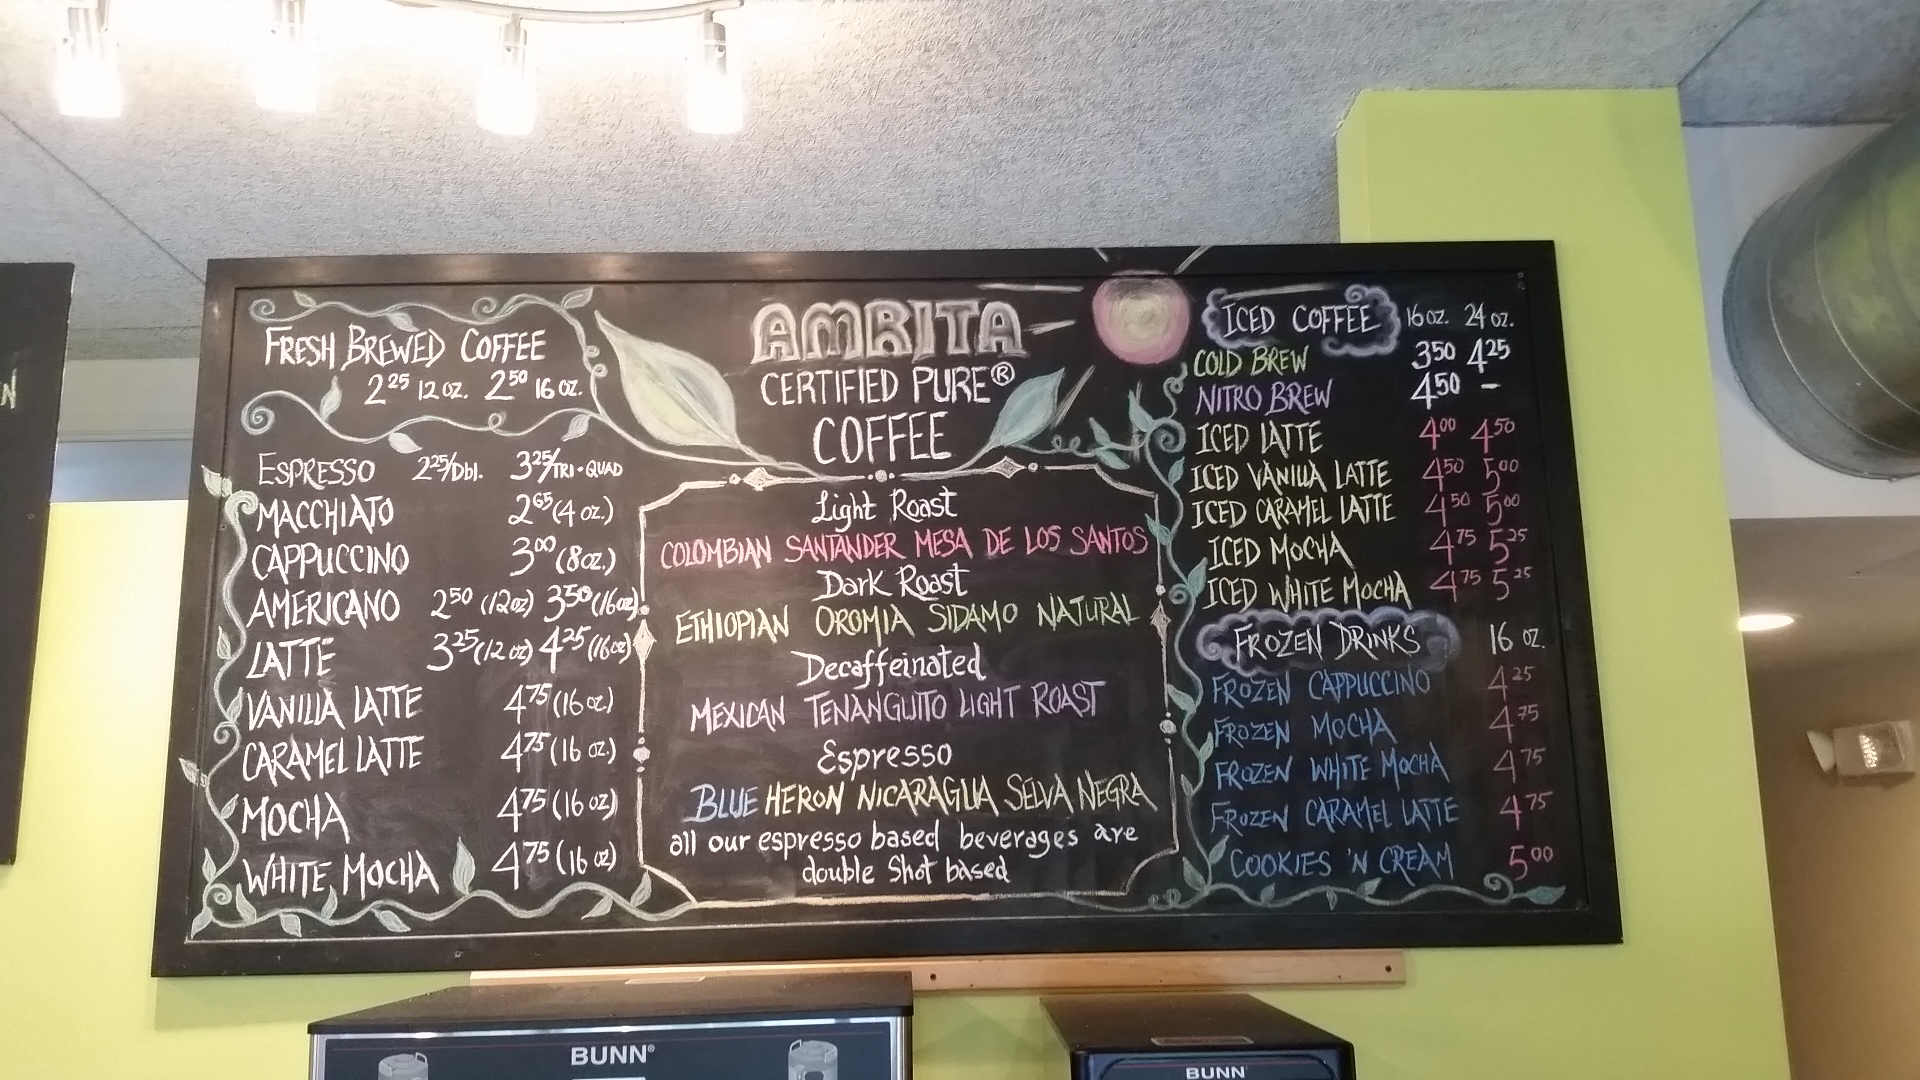 FRESH BREWED COFFEE
2²⁵ 12 oz. 2⁵⁰ 16 oz.
ESPRESSO 2²⁵/Dbl. 3²⁵/TRI-QUAD
MACCHIATO 2⁶⁵ (4 oz.)
CAPPUCCINO 3⁰⁰ (8oz.)
AMERICANO 2⁵⁰ (12oz) 3⁵⁰ (16oz)
LATTE 3²⁵ (12 oz) 4²⁵ (16oz)
VANILLA LATTE 4⁷⁵ (16 oz.)
CARAMEL LATTE 4⁷⁵ (16 oz.)
MOCHA 4⁷⁵ (16 oz)
WHITE MOCHA 4⁷⁵ (16 oz)
AMRITA
CERTIFIED PURE®
COFFEE
Light Roast
COLOMBIAN SANTANDER MESA DE LOS SANTOS
Dark Roast
ETHIOPIAN OROMIA SIDAMO NATURAL
Decaffeinated
MEXICAN TENANGUITO LIGHT ROAST
Espresso
BLUE HERON NICARAGUA SELVA NEGRA
all our espresso based beverages are
double Shot based
ICED COFFEE 16 oz. 24 oz.
COLD BREW 3⁵⁰ 4²⁵
NITRO BREW 4⁵⁰ –
ICED LATTE 4⁰⁰ 4⁵⁰
ICED VANILLA LATTE 4⁵⁰ 5⁰⁰
ICED CARAMEL LATTE 4⁵⁰ 5⁰⁰
ICED MOCHA 4⁷⁵ 5²⁵
ICED WHITE MOCHA 4⁷⁵ 5²⁵
FROZEN DRINKS 16 oz.
FROZEN CAPPUCCINO 4²⁵
FROZEN MOCHA 4⁷⁵
FROZEN WHITE MOCHA 4⁷⁵
FROZEN CARAMEL LATTE 4⁷⁵
COOKIES 'N CREAM 5⁰⁰
BUNN®
BUNN